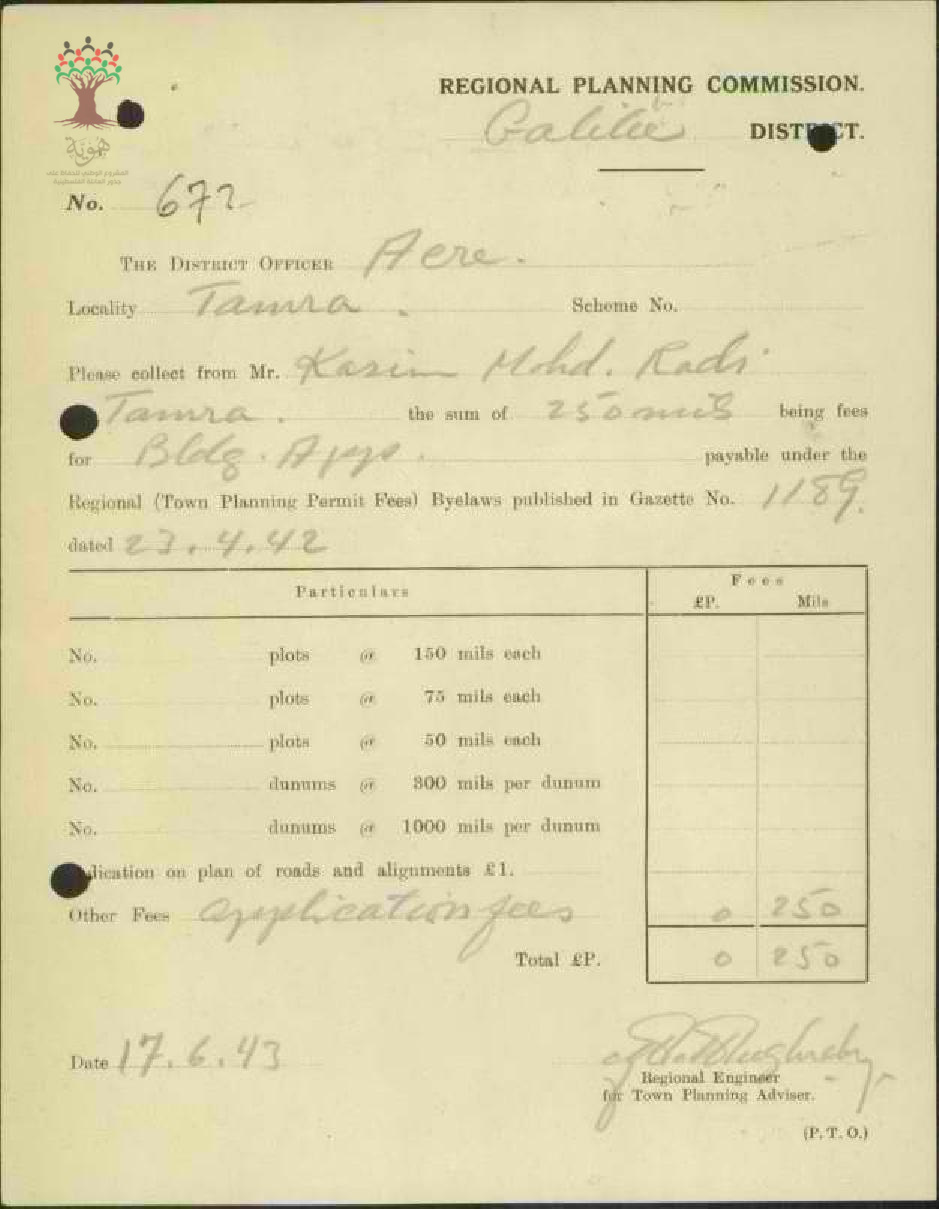 هوية
REGIONAL PLANNING COMMISSION.
Galilee DISTRICT.
No. 672
THE DISTRICT OFFICER Acre.
Locality Tamra. Scheme No.
Please collect from Mr. Kasim Mohd. Radi
Tamra. the sum of 250 mils being fees
for Bldg. App. payable under the
Regional (Town Planning Permit Fees) Byelaws published in Gazette No. 1189.
dated 23.4.42
Particulars Fees
£P. Mils
No. plots @ 150 mils each
No. plots @ 75 mils each
No. plots @ 50 mils each
No. dunums @ 300 mils per dunum
No. dunums @ 1000 mils per dunum
dication on plan of roads and alignments £1.
Other Fees application fees 0 250
Total £P. 0 250
Date 17.6.43
Regional Engineer
for Town Planning Adviser.
(P. T. O.)